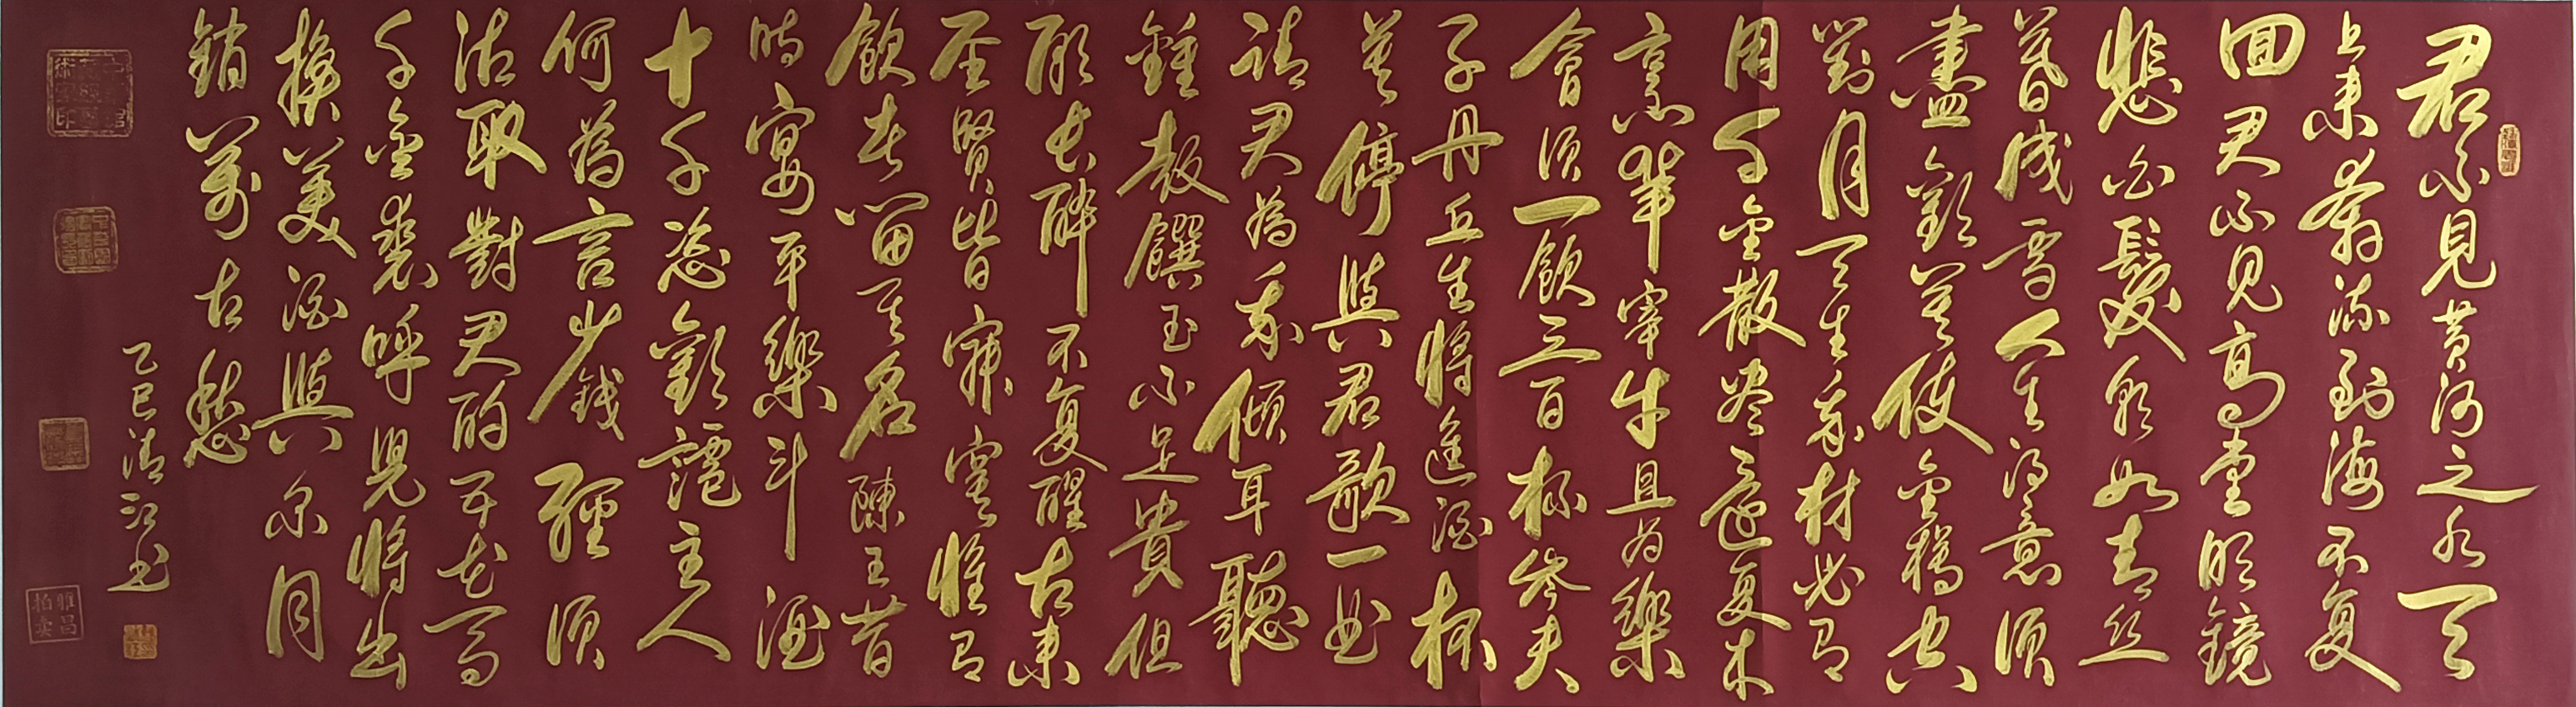 君不見黄河之水天
上來奔流到海不復
回君不見高堂明鏡
悲白髮朝如青丝
暮成雪人生得意須
盡歡莫使金樽空
對月天生我材必有
用千金散尽還復来
烹羊宰牛且为樂
會須一飲三百杯岑夫
子丹丘生將進酒杯
莫停與君歌一曲
請君為我傾耳聽
鍾鼓饌玉不足貴但
願長醉不復醒古來
圣賢皆寂寞惟有
飲者留其名陳王昔
時宴平樂斗酒
十千恣歡謔主人
何為言少錢徑須
沽取對君酌五花馬
千金裘呼兒將出
換美酒與尔同
銷萬古愁
乙巳清江书
雅昌
拍卖